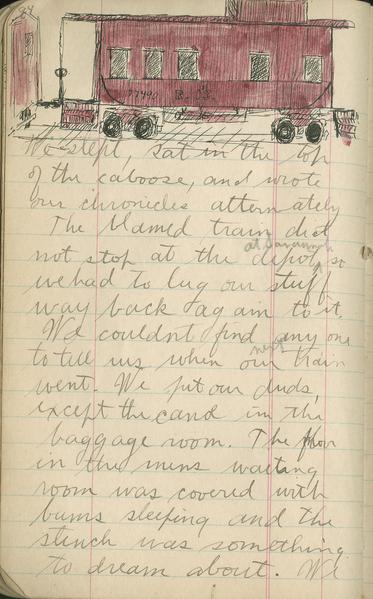 84
77490 R. I.
We slept, sat in the top
of the caboose, and wrote
our chronicles alternately
The blamed train did
at Savannah
not stop at the depot, so
we had to lug our stuff
way back again to it.
We couldnt find any one
next
to tell us when our train
went. We put our duds,
except the canoe in the
baggage room. The floor
in the mens waiting
room was covered with
bums sleeping and the
stench was something
to dream about. We